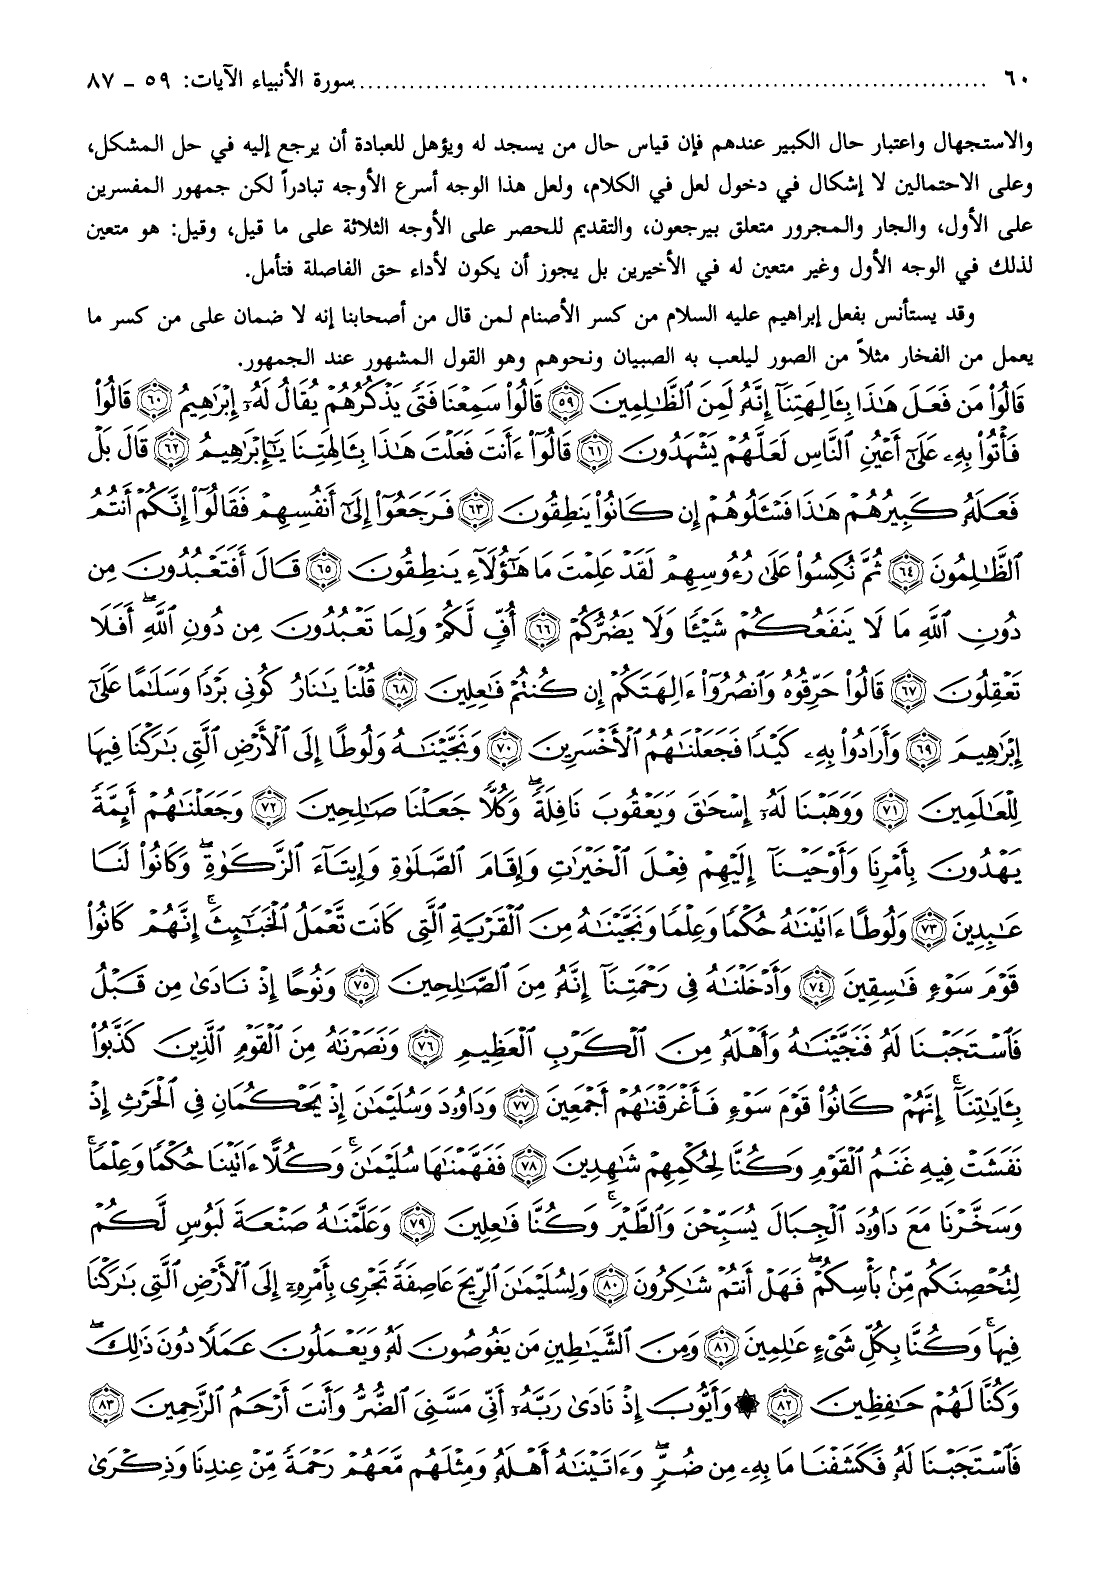 ٦٠ ........................................................ سورة الأنبياء الآيات: ٥٩ - ٨٧
والاستجهال واعتبار حال الكبير عندهم فإن قياس حال من يسجد له ويؤهل للعبادة أن يرجع إليه في حل المشكل،
وعلى الاحتمالين لا إشكال في دخول لعل في الكلام، ولعل هذا الوجه أسرع الأوجه تبادراً لكن جمهور المفسرين
على الأول، والجار والمجرور متعلق بيرجعون، والتقديم للحصر على الأوجه الثلاثة على ما قيل، وقيل: هو متعين
لذلك في الوجه الأول وغير متعين له في الأخيرين بل يجوز أن يكون لأداء حق الفاصلة فتأمل.
وقد يستأنس بفعل إبراهيم عليه السلام من كسر الأصنام لمن قال من أصحابنا إنه لا ضمان على من كسر ما
يعمل من الفخار مثلاً من الصور ليلعب به الصبيان ونحوهم وهو القول المشهور عند الجمهور.
قَالُوا۟ مَن فَعَلَ هَـٰذَا بِـَٔالِهَتِنَآ إِنَّهُۥ لَمِنَ ٱلظَّـٰلِمِينَ ٥٩ قَالُوا۟ سَمِعْنَا فَتًى يَذْكُرُهُمْ يُقَالُ لَهُۥٓ إِبْرَٰهِيمُ ٦٠ قَالُوا۟
فَأْتُوا۟ بِهِۦ عَلَىٰٓ أَعْيُنِ ٱلنَّاسِ لَعَلَّهُمْ يَشْهَدُونَ ٦١ قَالُوٓا۟ ءَأَنتَ فَعَلْتَ هَـٰذَا بِـَٔالِهَتِنَا يَـٰٓإِبْرَٰهِيمُ ٦٢ قَالَ بَلْ
فَعَلَهُۥ كَبِيرُهُمْ هَـٰذَا فَسْـَٔلُوهُمْ إِن كَانُوا۟ يَنطِقُونَ ٦٣ فَرَجَعُوٓا۟ إِلَىٰٓ أَنفُسِهِمْ فَقَالُوٓا۟ إِنَّكُمْ أَنتُمُ
ٱلظَّـٰلِمُونَ ٦٤ ثُمَّ نُكِسُوا۟ عَلَىٰ رُءُوسِهِمْ لَقَدْ عَلِمْتَ مَا هَـٰٓؤُلَآءِ يَنطِقُونَ ٦٥ قَالَ أَفَتَعْبُدُونَ مِن
دُونِ ٱللَّهِ مَا لَا يَنفَعُكُمْ شَيْـًٔا وَلَا يَضُرُّكُمْ ٦٦ أُفٍّ لَّكُمْ وَلِمَا تَعْبُدُونَ مِن دُونِ ٱللَّهِ ۖ أَفَلَا
تَعْقِلُونَ ٦٧ قَالُوا۟ حَرِّقُوهُ وَٱنصُرُوٓا۟ ءَالِهَتَكُمْ إِن كُنتُمْ فَـٰعِلِينَ ٦٨ قُلْنَا يَـٰنَارُ كُونِى بَرْدًا وَسَلَـٰمًا عَلَىٰٓ
إِبْرَٰهِيمَ ٦٩ وَأَرَادُوا۟ بِهِۦ كَيْدًا فَجَعَلْنَـٰهُمُ ٱلْأَخْسَرِينَ ٧٠ وَنَجَّيْنَـٰهُ وَلُوطًا إِلَى ٱلْأَرْضِ ٱلَّتِى بَـٰرَكْنَا فِيهَا
لِلْعَـٰلَمِينَ ٧١ وَوَهَبْنَا لَهُۥٓ إِسْحَـٰقَ وَيَعْقُوبَ نَافِلَةً ۖ وَكُلًّا جَعَلْنَا صَـٰلِحِينَ ٧٢ وَجَعَلْنَـٰهُمْ أَئِمَّةً
يَهْدُونَ بِأَمْرِنَا وَأَوْحَيْنَآ إِلَيْهِمْ فِعْلَ ٱلْخَيْرَٰتِ وَإِقَامَ ٱلصَّلَوٰةِ وَإِيتَآءَ ٱلزَّكَوٰةِ ۖ وَكَانُوا۟ لَنَا
عَـٰبِدِينَ ٧٣ وَلُوطًا ءَاتَيْنَـٰهُ حُكْمًا وَعِلْمًا وَنَجَّيْنَـٰهُ مِنَ ٱلْقَرْيَةِ ٱلَّتِى كَانَت تَّعْمَلُ ٱلْخَبَـٰٓئِثَ ۗ إِنَّهُمْ كَانُوا۟
قَوْمَ سَوْءٍ فَـٰسِقِينَ ٧٤ وَأَدْخَلْنَـٰهُ فِى رَحْمَتِنَآ إِنَّهُۥ مِنَ ٱلصَّـٰلِحِينَ ٧٥ وَنُوحًا إِذْ نَادَىٰ مِن قَبْلُ
فَٱسْتَجَبْنَا لَهُۥ فَنَجَّيْنَـٰهُ وَأَهْلَهُۥ مِنَ ٱلْكَرْبِ ٱلْعَظِيمِ ٧٦ وَنَصَرْنَـٰهُ مِنَ ٱلْقَوْمِ ٱلَّذِينَ كَذَّبُوا۟
بِـَٔايَـٰتِنَآ ۚ إِنَّهُمْ كَانُوا۟ قَوْمَ سَوْءٍ فَأَغْرَقْنَـٰهُمْ أَجْمَعِينَ ٧٧ وَدَاوُۥدَ وَسُلَيْمَـٰنَ إِذْ يَحْكُمَانِ فِى ٱلْحَرْثِ إِذْ
نَفَشَتْ فِيهِ غَنَمُ ٱلْقَوْمِ وَكُنَّا لِحُكْمِهِمْ شَـٰهِدِينَ ٧٨ فَفَهَّمْنَـٰهَا سُلَيْمَـٰنَ ۚ وَكُلًّا ءَاتَيْنَا حُكْمًا وَعِلْمًا ۚ
وَسَخَّرْنَا مَعَ دَاوُۥدَ ٱلْجِبَالَ يُسَبِّحْنَ وَٱلطَّيْرَ ۚ وَكُنَّا فَـٰعِلِينَ ٧٩ وَعَلَّمْنَـٰهُ صَنْعَةَ لَبُوسٍ لَّكُمْ
لِتُحْصِنَكُم مِّنۢ بَأْسِكُمْ ۖ فَهَلْ أَنتُمْ شَـٰكِرُونَ ٨٠ وَلِسُلَيْمَـٰنَ ٱلرِّيحَ عَاصِفَةً تَجْرِى بِأَمْرِهِۦٓ إِلَى ٱلْأَرْضِ ٱلَّتِى بَـٰرَكْنَا
فِيهَا ۚ وَكُنَّا بِكُلِّ شَىْءٍ عَـٰلِمِينَ ٨١ وَمِنَ ٱلشَّيَـٰطِينِ مَن يَغُوصُونَ لَهُۥ وَيَعْمَلُونَ عَمَلًا دُونَ ذَٰلِكَ ۖ
وَكُنَّا لَهُمْ حَـٰفِظِينَ ٨٢ ۞ وَأَيُّوبَ إِذْ نَادَىٰ رَبَّهُۥٓ أَنِّى مَسَّنِىَ ٱلضُّرُّ وَأَنتَ أَرْحَمُ ٱلرَّٰحِمِينَ ٨٣
فَٱسْتَجَبْنَا لَهُۥ فَكَشَفْنَا مَا بِهِۦ مِن ضُرٍّ ۖ وَءَاتَيْنَـٰهُ أَهْلَهُۥ وَمِثْلَهُم مَّعَهُمْ رَحْمَةً مِّنْ عِندِنَا وَذِكْرَىٰ